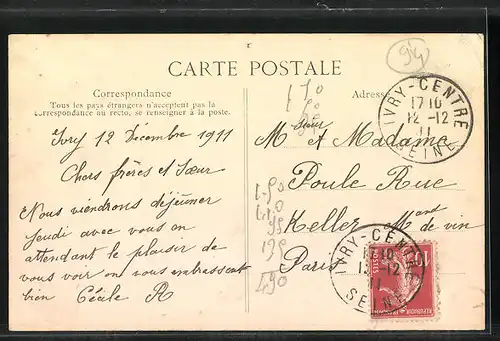 94
CARTE POSTALE
Correspondance
Tous les pays étrangers n'acceptent pas la
correspondance au recto, se renseigner à la poste.
Ivry 12 Decembre 1911
Chers frères et Sœur
Nous viendrons déjeuner
jeudi avec vous en
attendant le plaisir de
vous voir on vous embrassent
bien Cécile R
Adresse
Msieur et Madame
Poule Rue
Keller Mant
de vin
Paris
IVRY-CENTRE
17 10
12 -12
11
SEINE
IVRY-CENTRE
17 10
12 -12
11
SEINE
10
POSTES
490